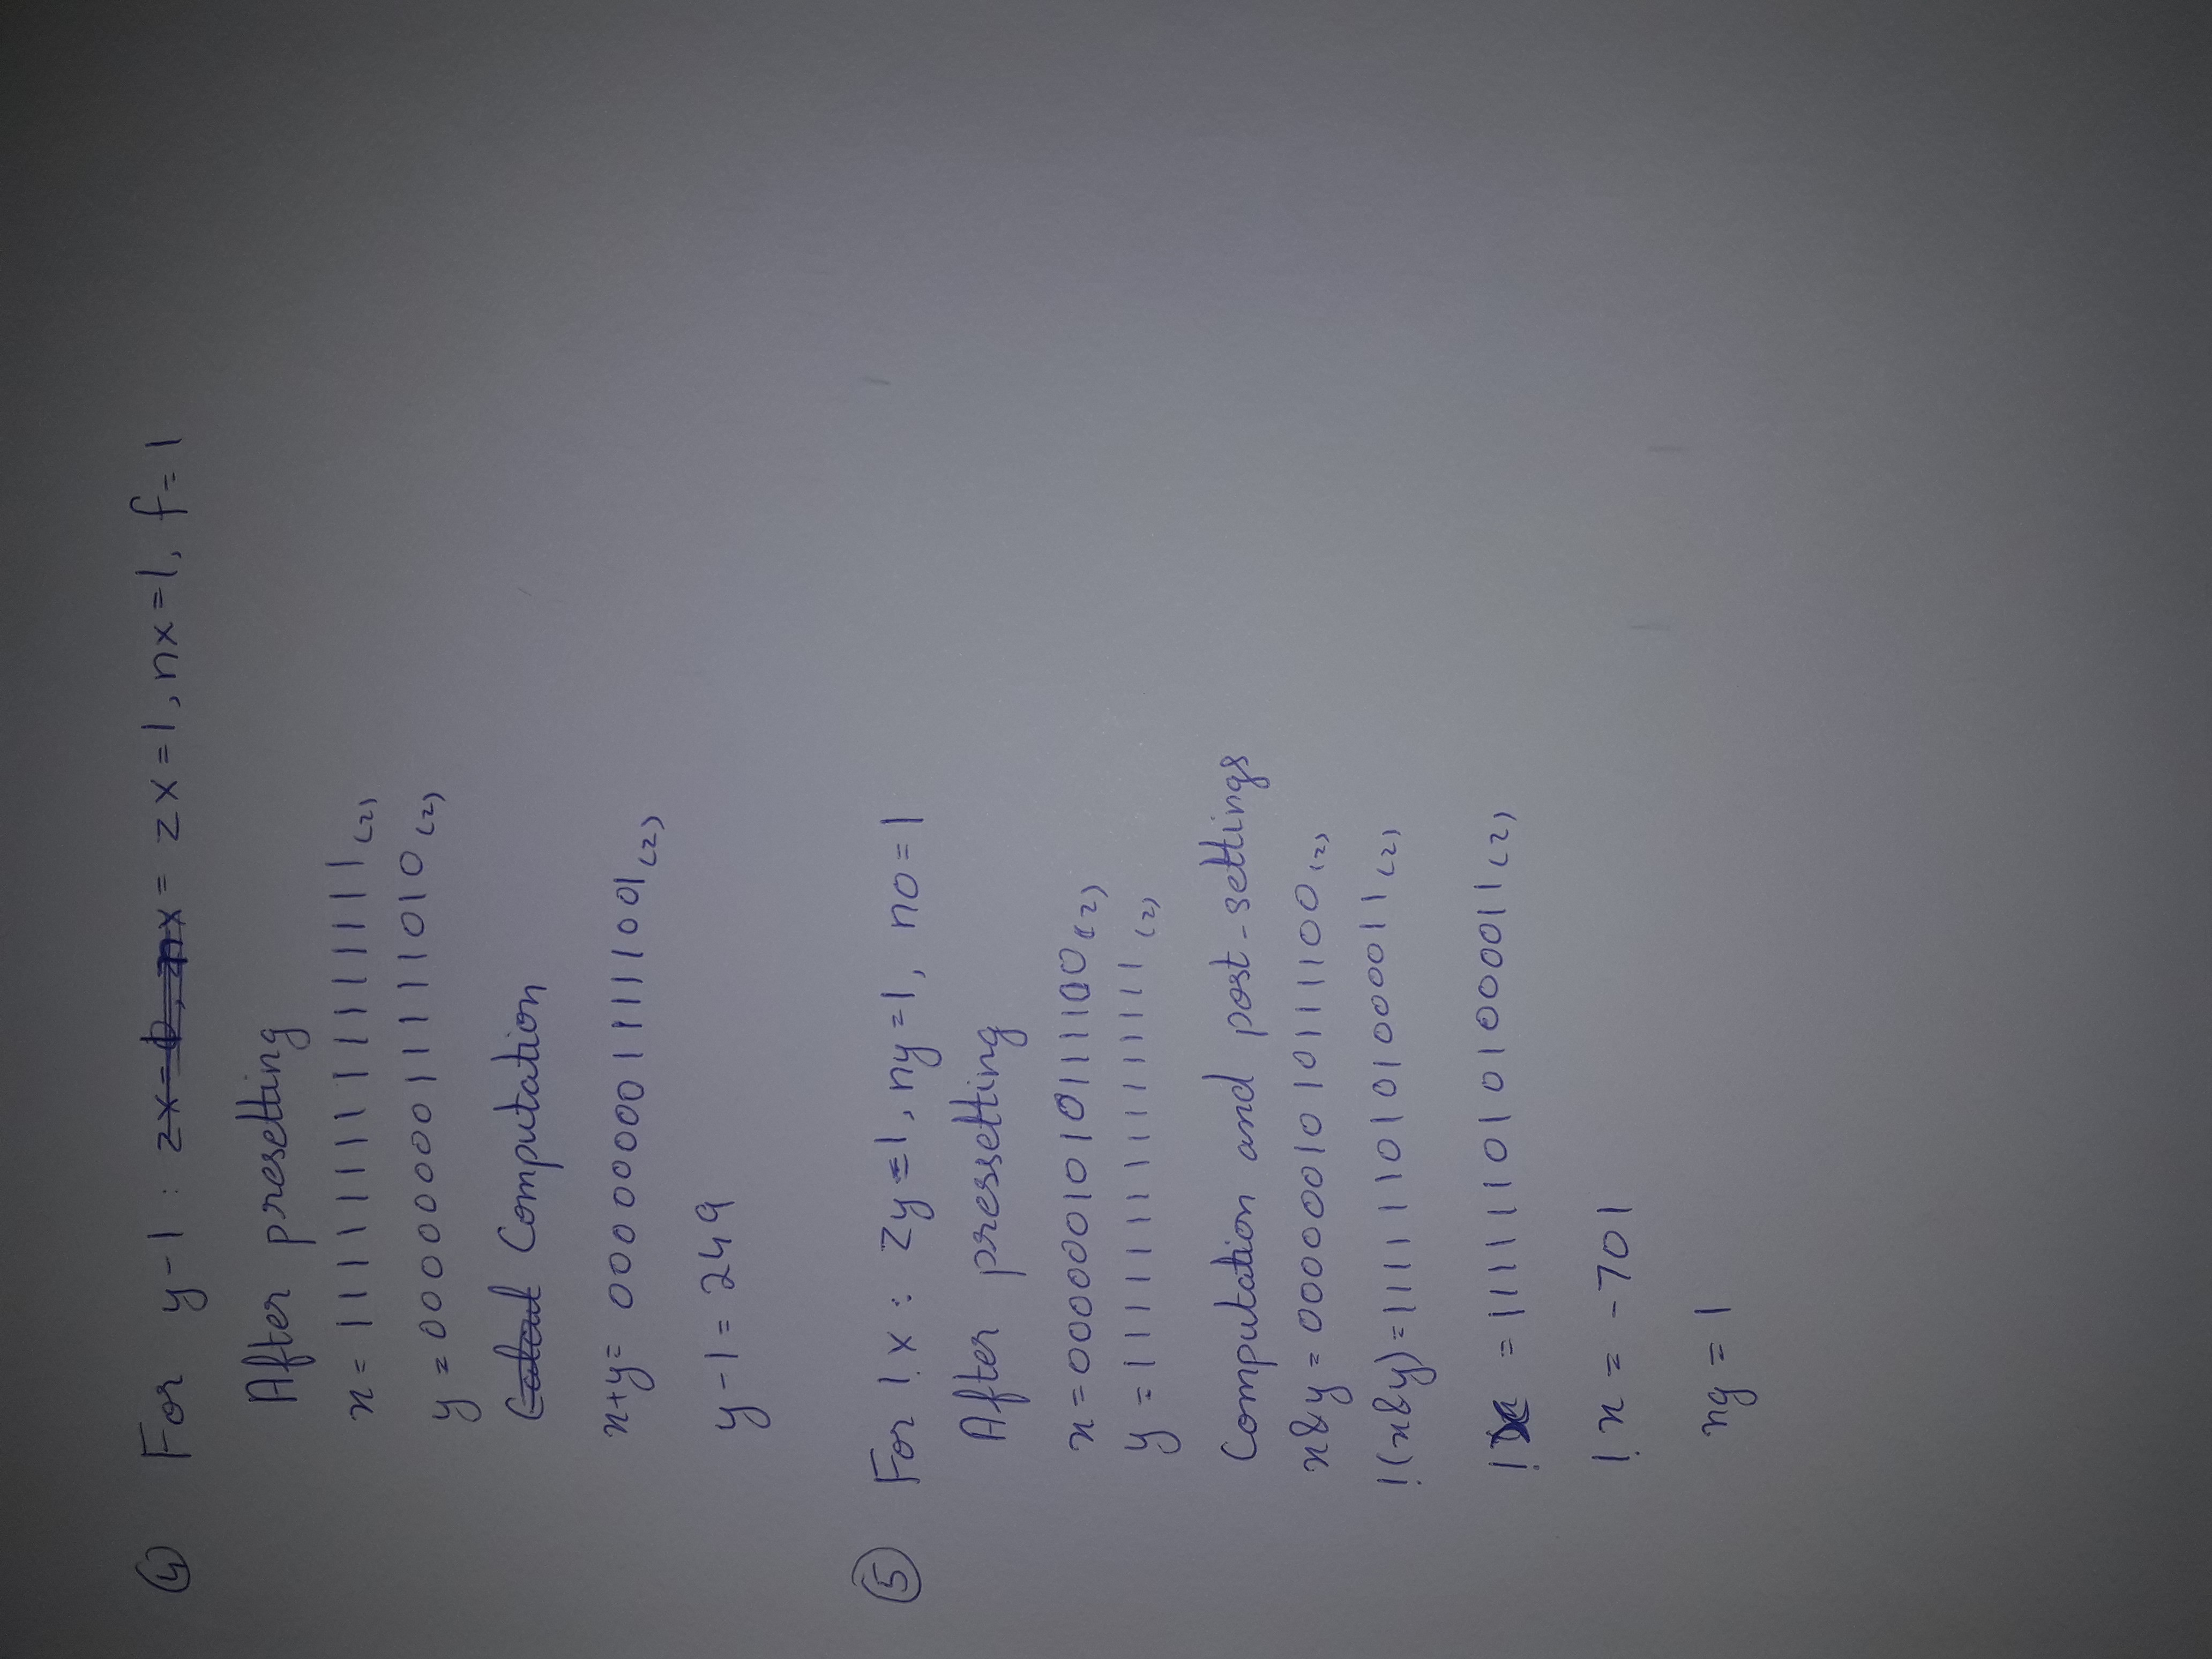 ④ For y-1 : zx=1, nx=1, f=1
After presetting
x=1111111111111111(2)
y=0000000011111010(2)
Computation
x+y= 0000000011111001(2)
y-1=249
⑤ For !x: zy=1, ny=1, no=1
After pressetting
x=0000001010111100(2)
y=1111111111111111(2)
Computation and post-settings
x&y=0000001010111100(2)
!(x&y)=1111110101000011(2)
!x =1111110101000011(2)
!x = -701
ng = 1